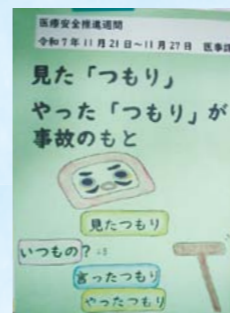 医療安全推進週間
令和7年11月21日～11月27日 医事課
見た「つもり」
やった「つもり」が
事故のもと
見たつもり
いつもの?
言ったつもり
やったつもり